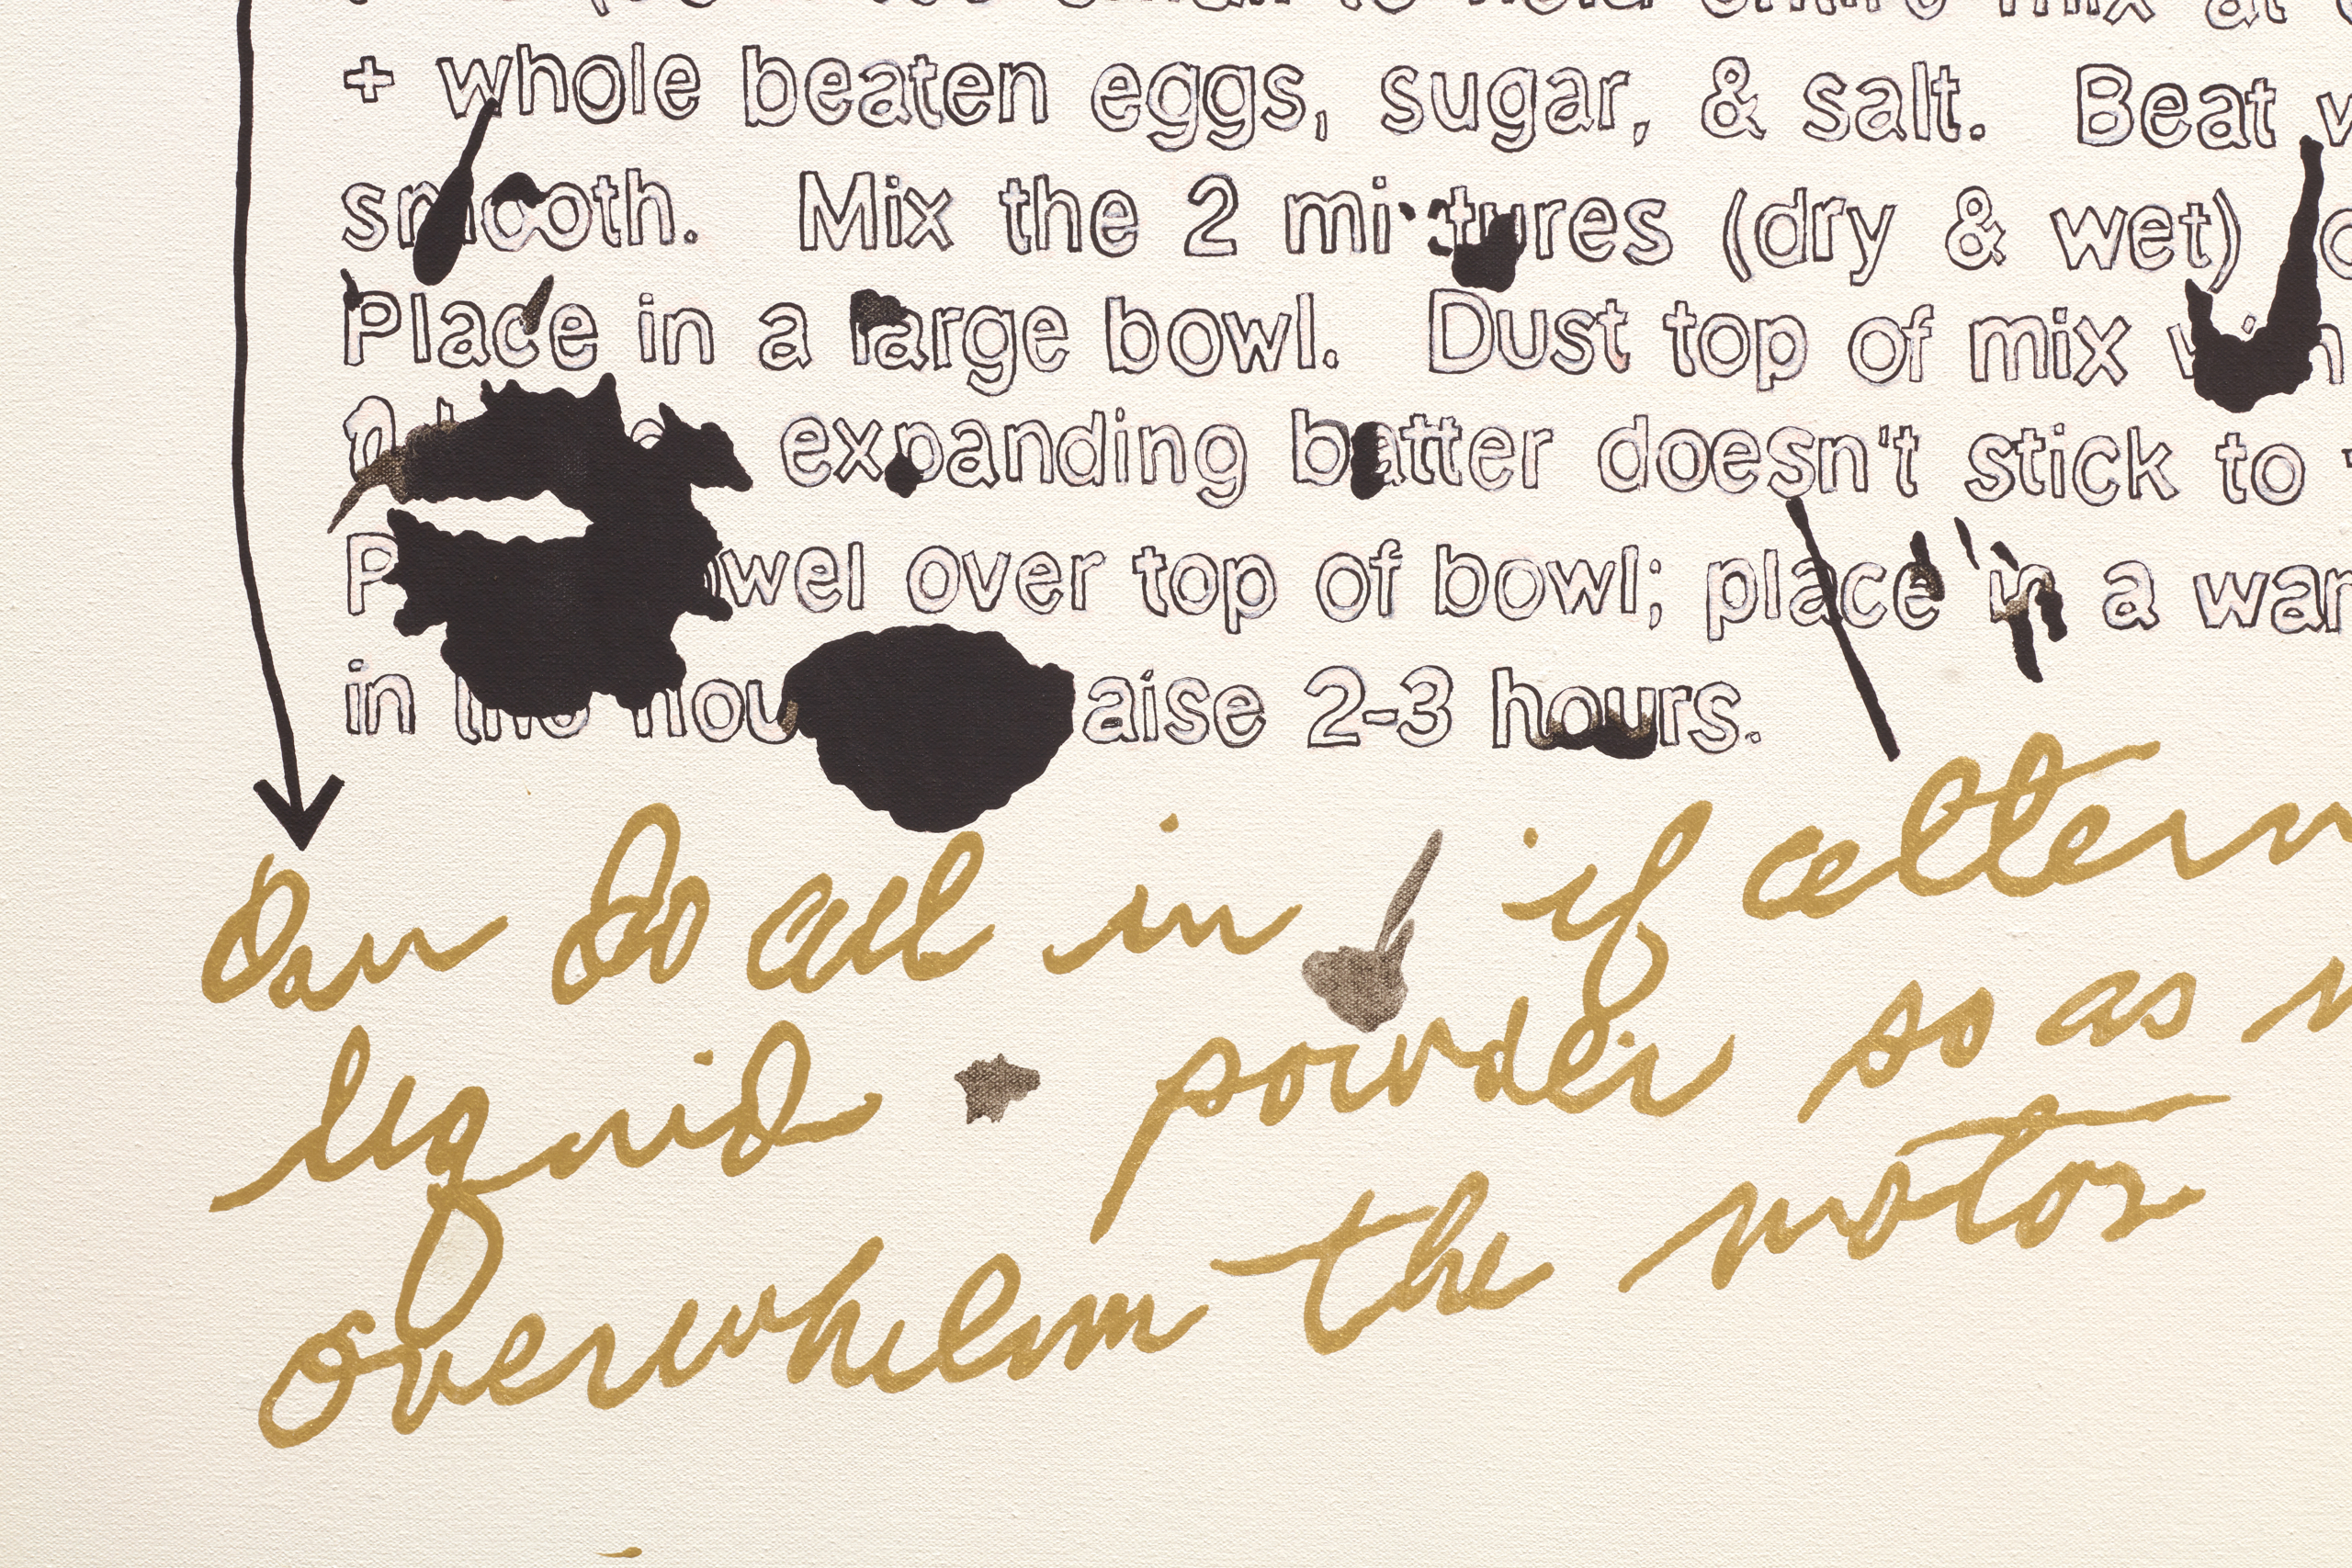 + whole beaten eggs, sugar, & salt. Beat
smooth. Mix the 2 mixtures (dry & wet)
Place in a large bowl. Dust top of mix
expanding batter doesn't stick to
over top of bowl; place in a
in 2-3 hours.
Can do all in if
liquid powder so as
overwhelm the motor